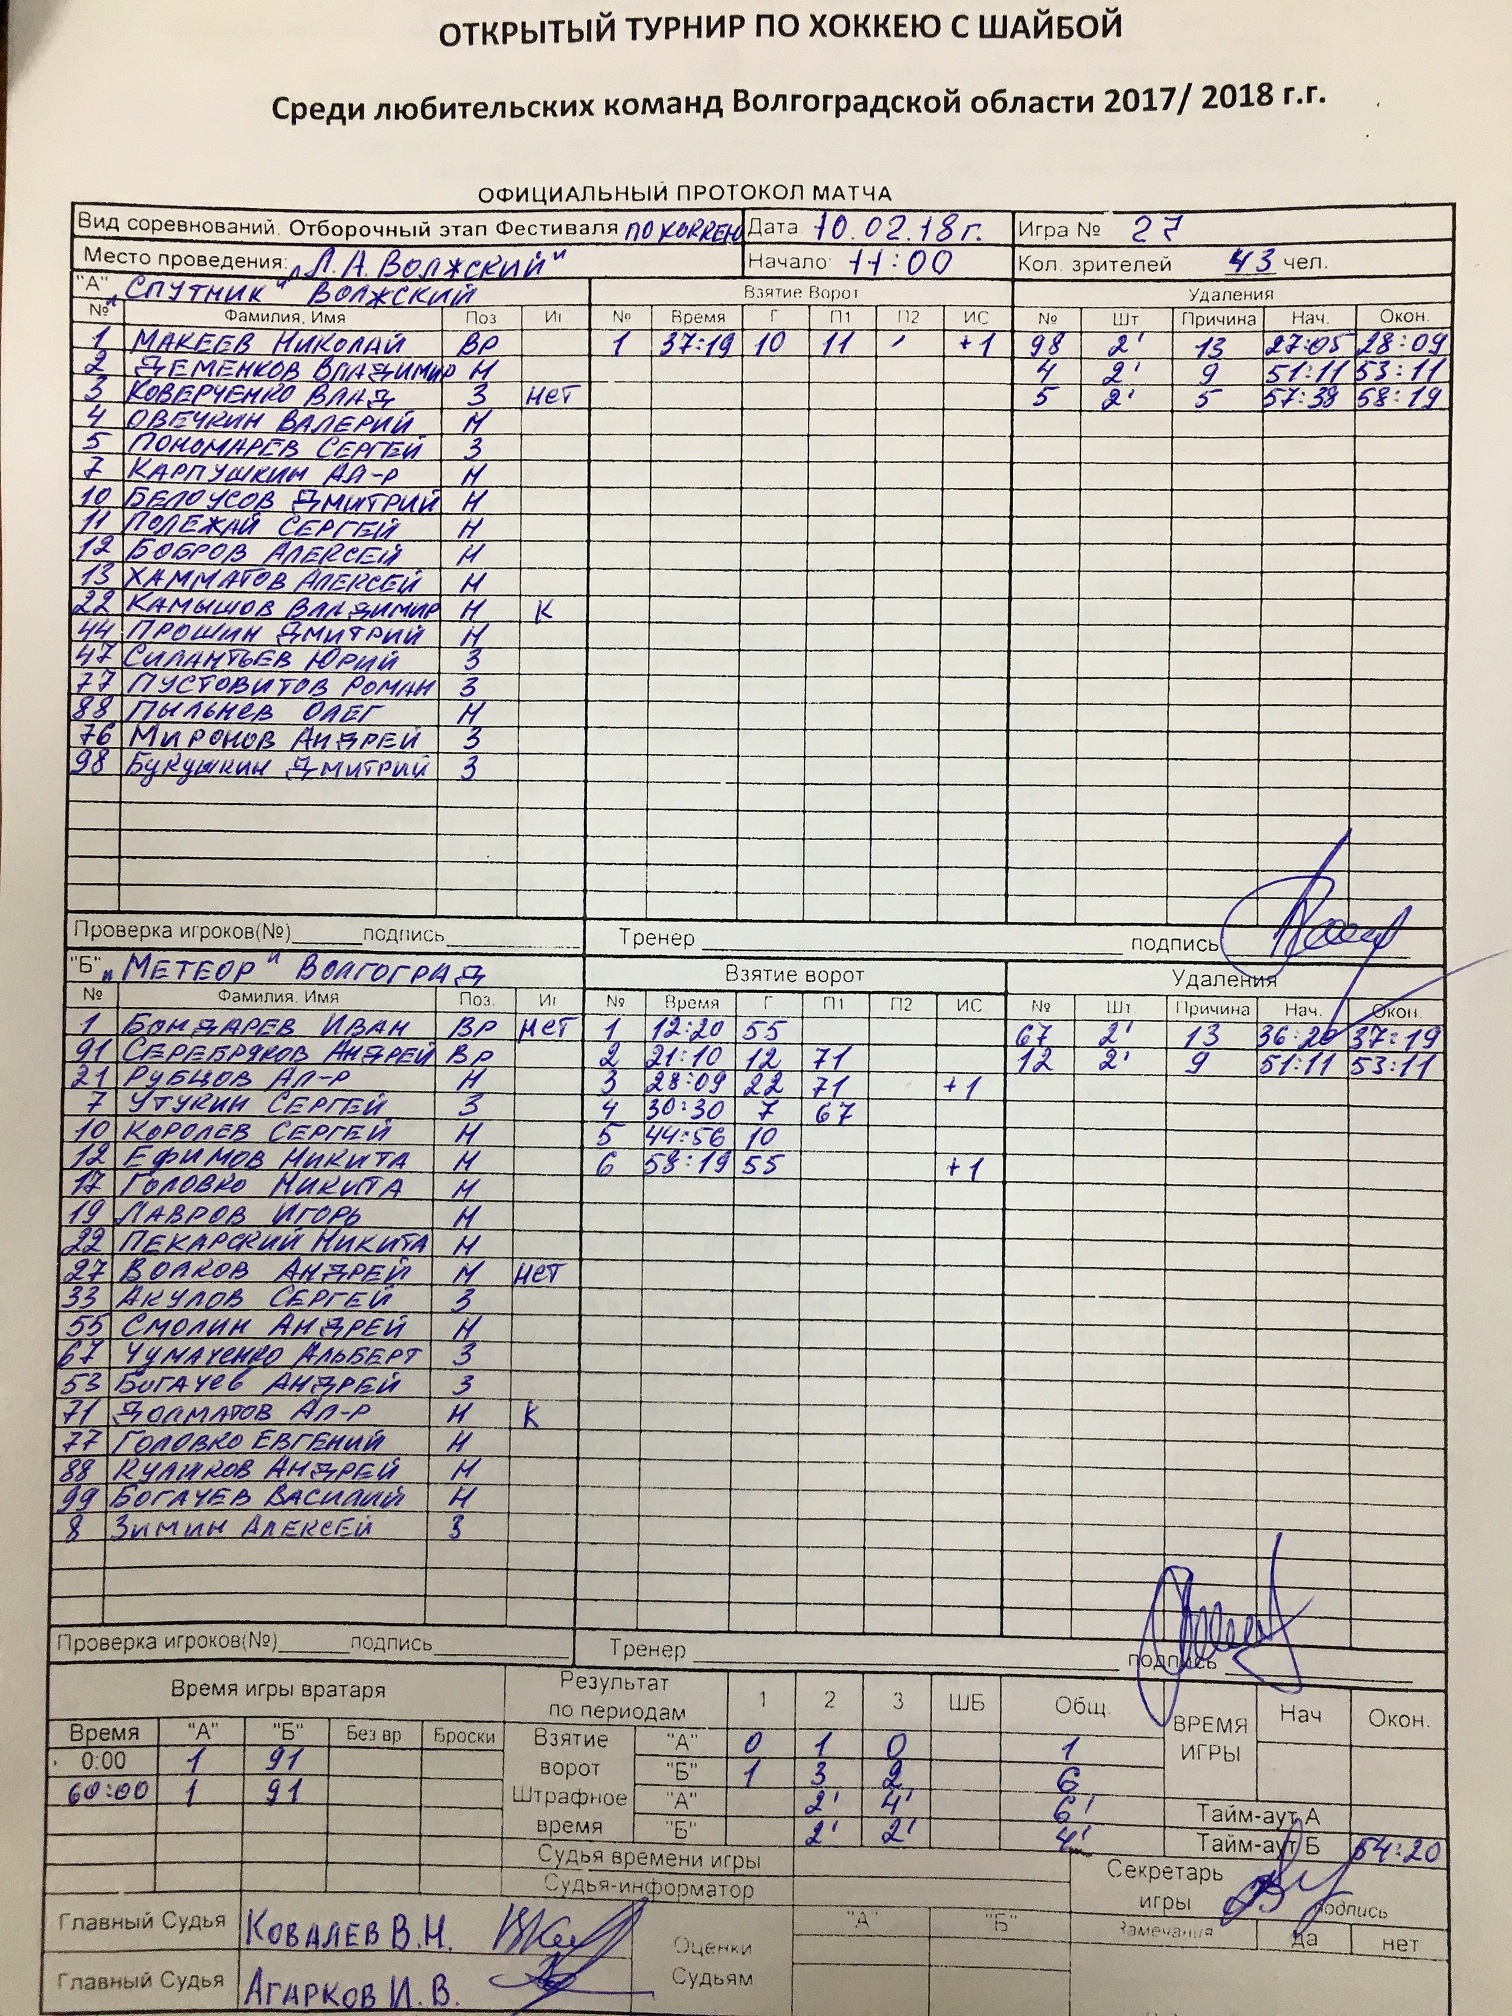 ОТКРЫТЫЙ ТУРНИР ПО ХОККЕЮ С ШАЙБОЙ
Среди любительских команд Волгоградской области 2017/ 2018 г.г.
ОФИЦИАЛЬНЫЙ ПРОТОКОЛ МАТЧА
Вид соревнований. Отборочный этап Фестиваля ПО ХОККЕЮ Дата 10.02.18г. Игра № 27
Место проведения: „Л.А. ВОЛЖСКИЙ" Начало: 11:00 Кол. зрителей 43 чел.
"А" „СПУТНИК" ВОЛЖСКИЙ Взятие Ворот Удаления
№ Фамилия, Имя Поз Иг № Время Г П1 П2 ИС № Шт Причина Нач. Окон.
1 МАКЕЕВ НИКОЛАЙ ВР 1 37:19 10 11 ' +1 98 2' 13 27:05 28:09
2 ДЕМЕНКОВ ВЛАДИМИР Н 4 2' 9 51:11 53:11
3 КОВЕРЧЕНКО ВЛАД З НЕТ 5 2' 5 57:38 58:19
4 ОВЕЧКИН ВАЛЕРИЙ Н
5 ПОНОМАРЕВ СЕРГЕЙ З
7 КАРПУШКИН АЛ-Р Н
10 БЕЛОУСОВ ДМИТРИЙ Н
11 ПОЛЕЖАЙ СЕРГЕЙ Н
12 БОБРОВ АЛЕКСЕЙ Н
13 ХАММАТОВ АЛЕКСЕЙ Н
22 КАМЫШОВ ВЛАДИМИР Н К
44 ПРОШИН ДМИТРИЙ Н
47 СИЛАНТЬЕВ ЮРИЙ З
77 ПУСТОВИТОВ РОМАН З
88 ПЫЛЬНЕВ ОЛЕГ Н
76 МИРОНОВ АНДРЕЙ З
98 БУКУШКИН ДМИТРИЙ З
Проверка игроков(№)______подпись____________ Тренер ____________ подпись ____________
"Б" „МЕТЕОР" ВОЛГОГРАД Взятие ворот Удаления
№ Фамилия. Имя Поз. Иг № Время Г П1 П2 ИС № Шт Причина Нач. Окон.
1 БОНДАРЕВ ИВАН ВР НЕТ 1 12:20 55 67 2' 13 36:20 37:19
91 СЕРЕБРЯКОВ АНДРЕЙ ВР 2 21:10 12 71 12 2' 9 51:11 53:11
21 РУБЦОВ АЛ-Р Н 3 28:09 22 71 +1
7 УТУКИН СЕРГЕЙ З 4 30:30 7 67
10 КОРОЛЕВ СЕРГЕЙ Н 5 44:56 10
12 ЕФИМОВ НИКИТА Н 6 58:19 55 +1
17 ГОЛОВКО НИКИТА Н
19 ЛАВРОВ ИГОРЬ Н
22 ПЕКАРСКИЙ НИКИТА Н
27 ВОЛКОВ АНДРЕЙ Н НЕТ
33 АКУЛОВ СЕРГЕЙ З
55 СМОЛИН АНДРЕЙ Н
67 ЧУМАЧЕНКО АЛЬБЕРТ З
53 БОГАЧЕВ АНДРЕЙ З
71 ДОЛМАТОВ АЛ-Р Н К
77 ГОЛОВКО ЕВГЕНИЙ Н
88 КУЛИКОВ АНДРЕЙ Н
99 БОГАЧЕВ ВАСИЛИЙ Н
8 ЗИМИН АЛЕКСЕЙ З
Проверка игроков(№)______подпись____________ Тренер ____________ подпись ____________
Время игры вратаря Результат по периодам 1 2 3 ШБ Общ. ВРЕМЯ ИГРЫ Нач Окон.
Время "А" "Б" Без вр Броски Взятие ворот "А" 0 1 0 1
0:00 1 91 "Б" 1 3 2 6
60:00 1 91 Штрафное время "А" 2' 4' 6' Тайм-аут А
"Б" 2' 2' 4' Тайм-аут Б 54:20
Судья времени игры Секретарь игры подпись
Судья-информатор
Главный Судья КОВАЛЕВ В.Н. Оценки Судьям "А" "Б" Замечания Да нет
Главный Судья АГАРКОВ И.В.